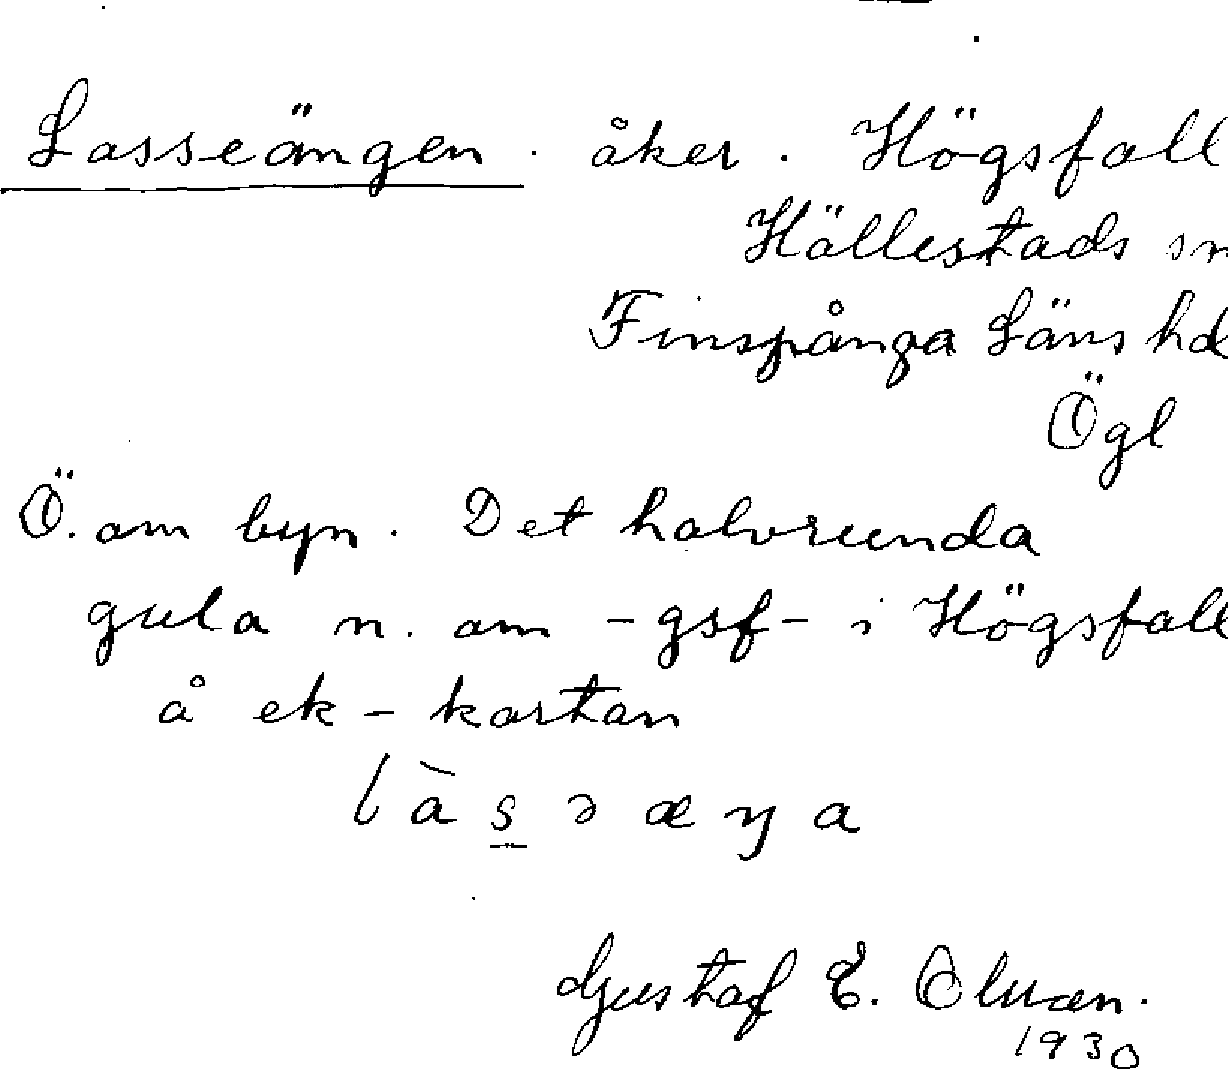 Lasseängen. åker. Högsfall
Hällestads sn
Finspånga Läns hd
Ögl
Ö. om byn. Det halvrunda
gula n. om -gsf- i Högsfall
å ek-kartan
làsəæŋa
Gustaf E.
1930